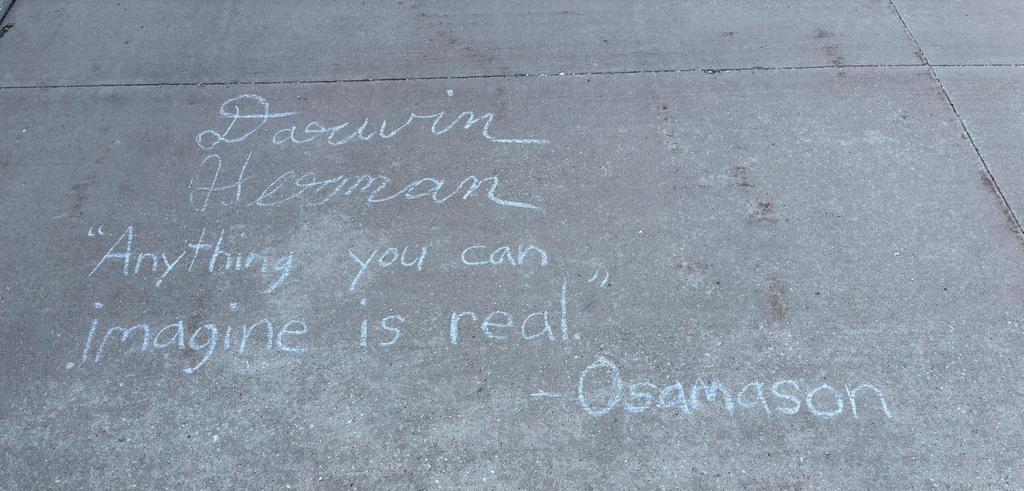 Darwin
Herman
"Anything you can
imagine is real."
- Osamason